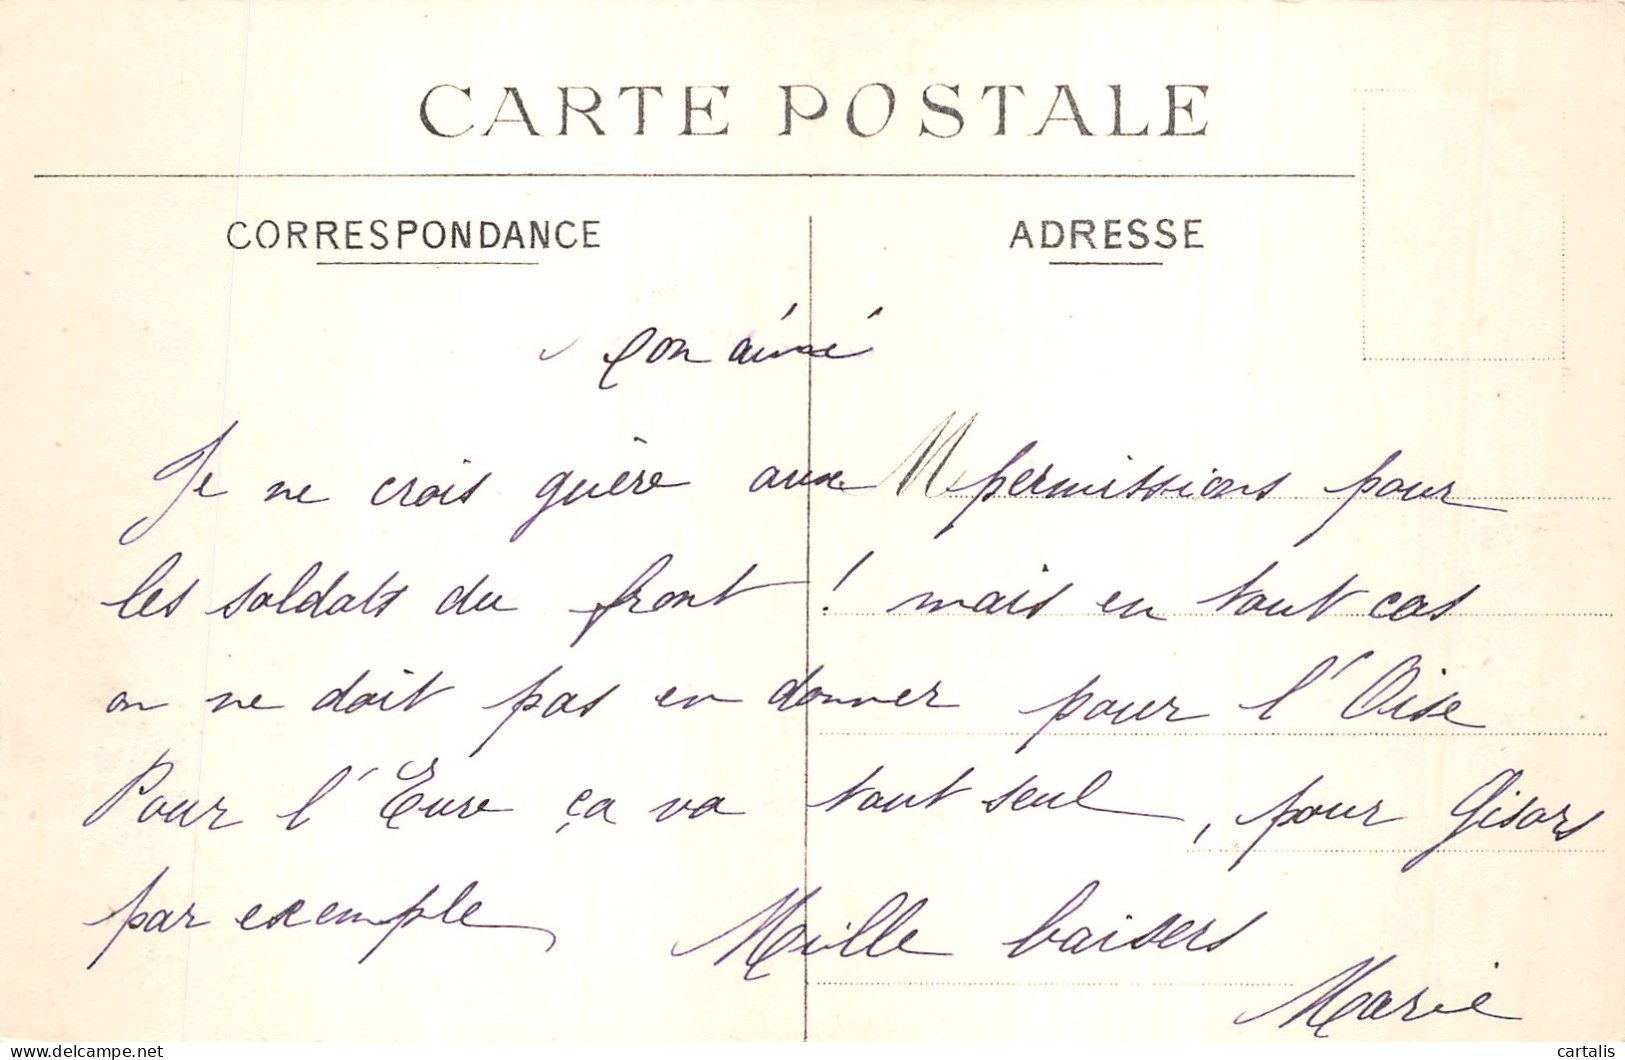 CARTE POSTALE
CORRESPONDANCE
ADRESSE
aimé
Je ne crois guère aux permissions pour
les soldats du front ! mais en tout cas
on ne doit pas en donner pour l'Oise
Pour l'Eure ça va tout seul, pour Gisors
par exemple Mille baisers
Marie
cartalis